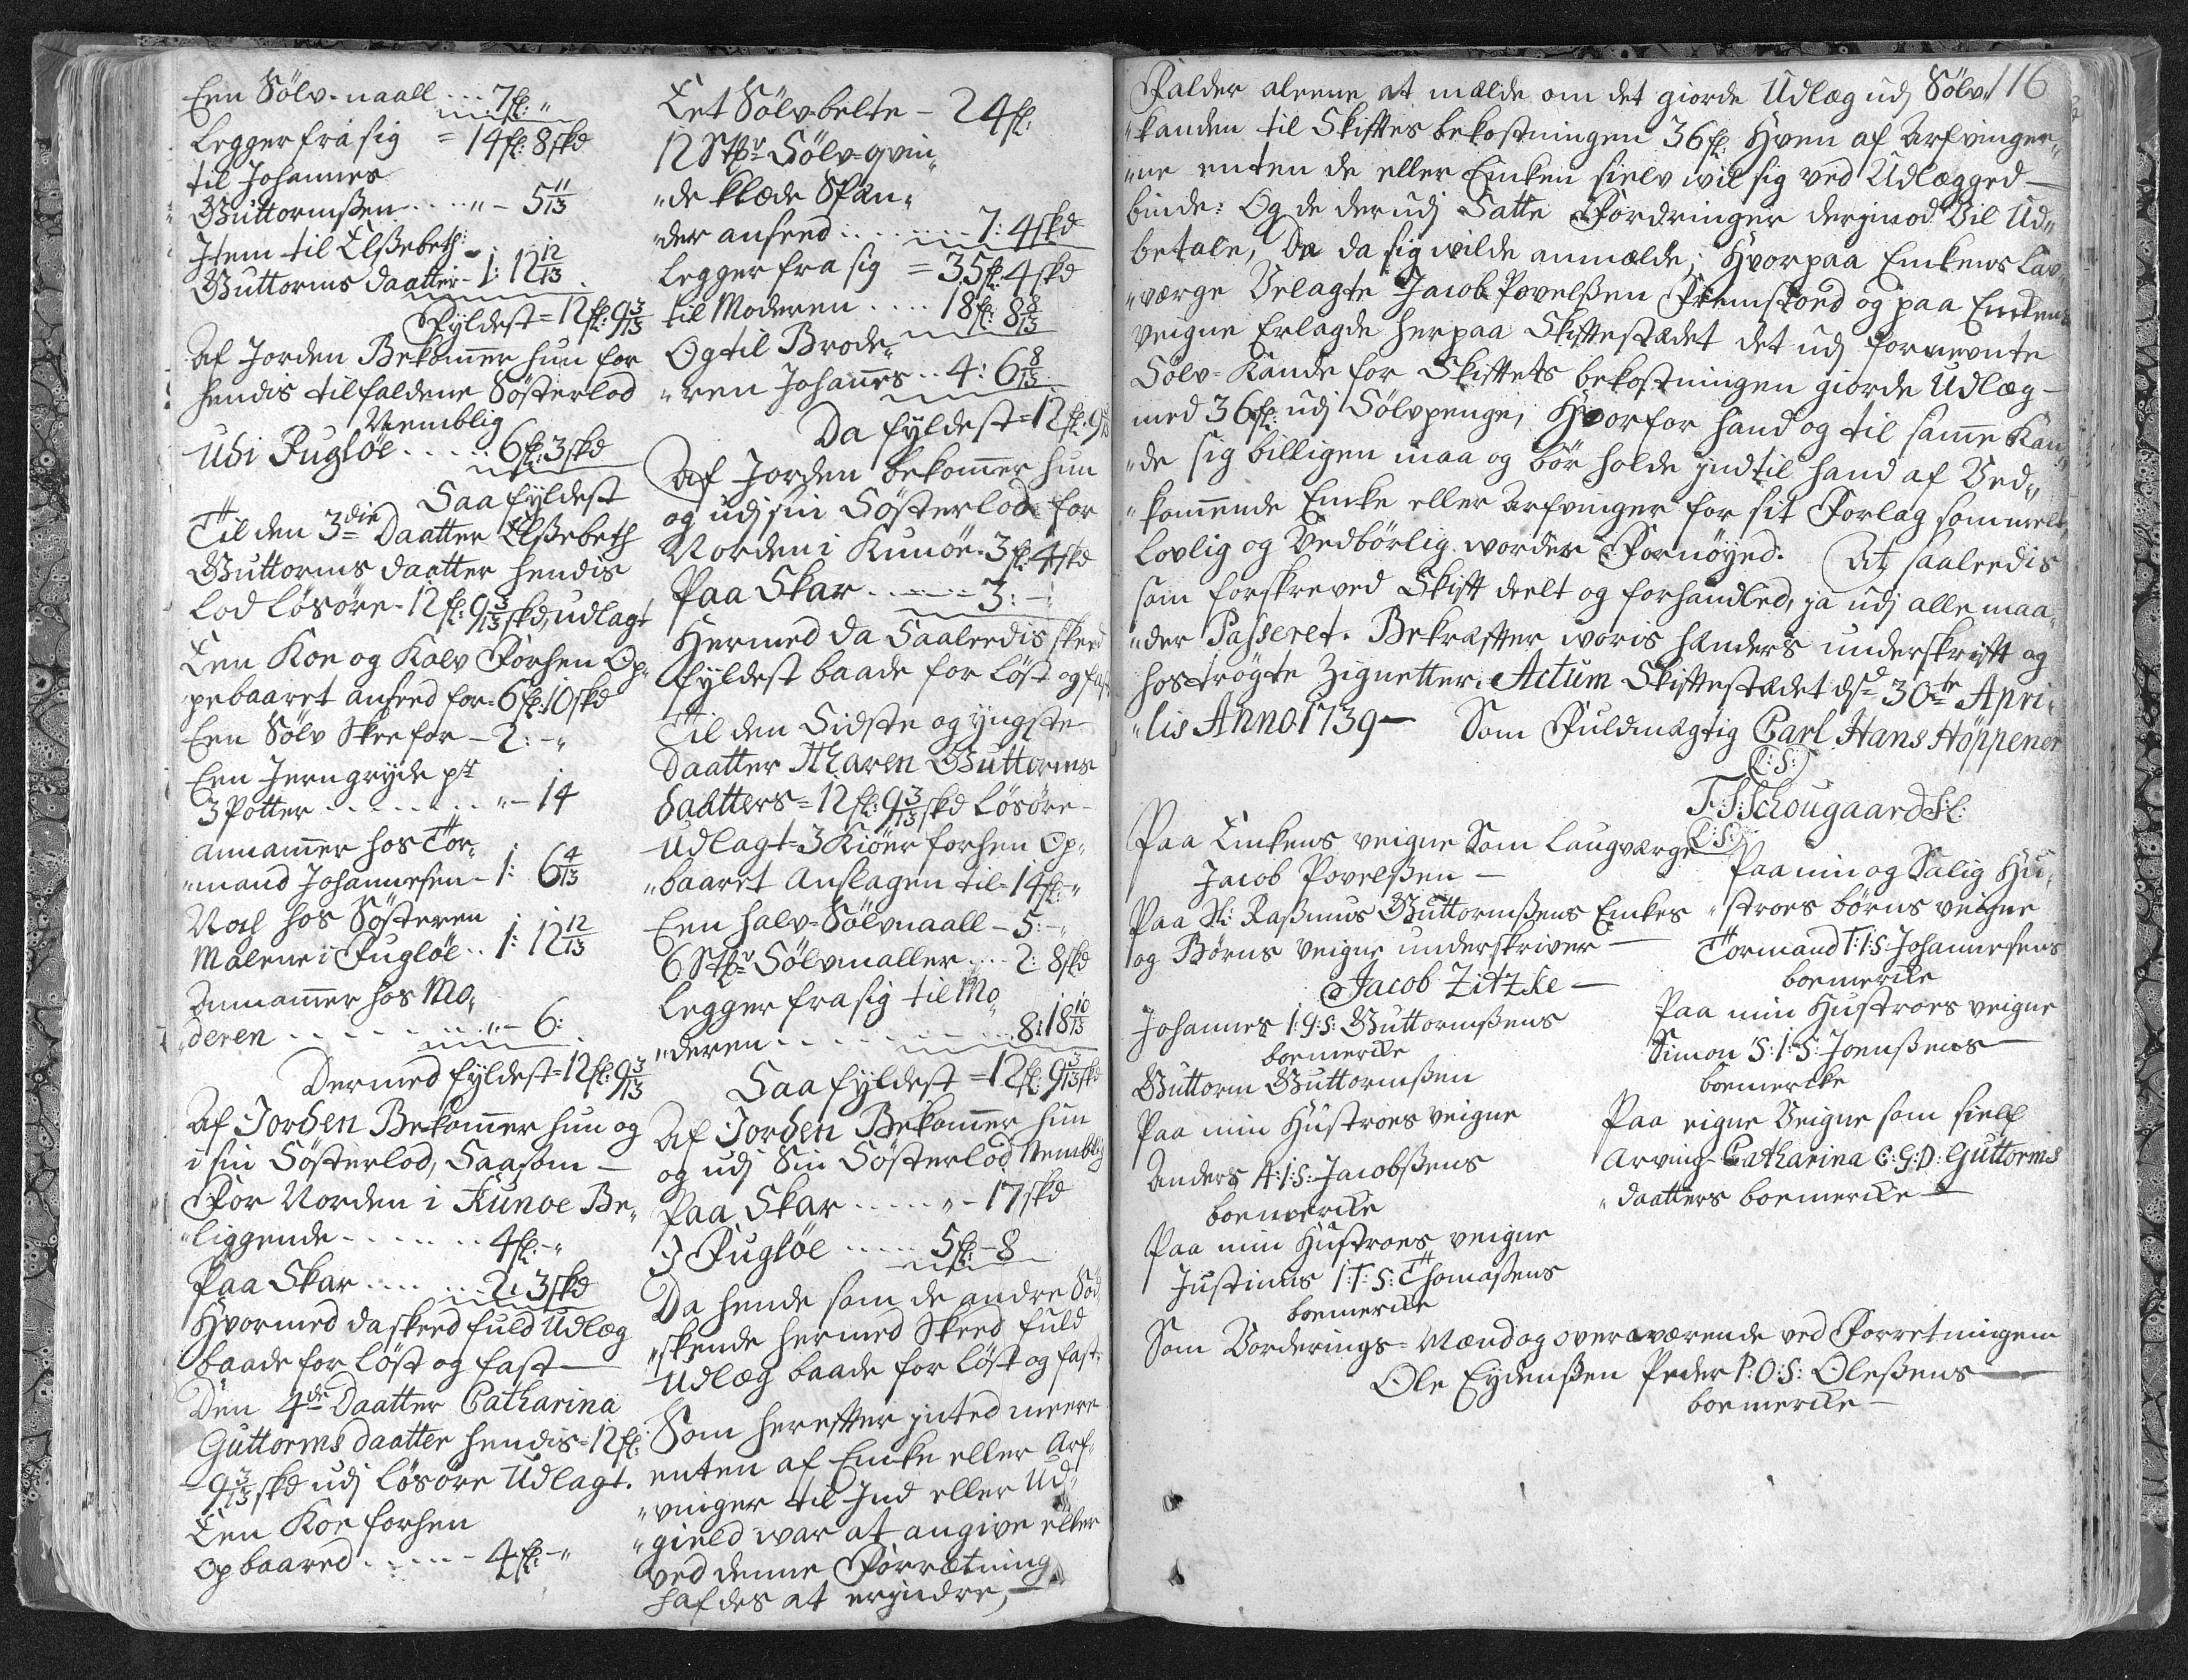 Een Sölv-naall ... 7 fl: "
Legger fra sig = 14 fl: 8 skd
til Johannes
Guttormsßen .... " - 5 11/13
Jtem til Elßebeth
Guttorms daatter - 1: 12 12/13
Fyldest = 12 fl: 9 3/13
Af Jorden Bekom̄er hun for
hendis tilfaldene Sösterlod
Nemblig
Udi Fuglöe ..... 6 fl: 3 skd
Saa fyldest
Til den 3die Daatter Elßebeth
Guttorms daatter hendis
Lod lösöre - 12 fl: 9 3/13 skd, udlagt
Een Koe og Kalv Forhen Op„
pebaaret anseed for - 6 fl: 10 skd
Een Sölv Skee for - 2: - "
Een Jerngryde pt
3 Potter ........ " - 14
annam̄er hos Tor„
„mand Johannesen - 1: 6 4/13
Noch hos Sösteren
Malene i Fuglöe .. 1: 12 12/13
Annam̄er hos Mo„
„deren ........ " - 6:
Dermed fyldest = 12 fl: 9 3/13
Af Jorden Bekom̄er hun og
i sin Sösterlod, Saasom —
For Norden i Kunoe Be„
„liggende ....... 4 fl: - "
Paa Skar ...... 2: 3 skd
Hvormed da skeed fuld Udlæg
baade for löst og fast —
Den 4de Daatter Catharina
Guttorms daatter hendis = 12 fl:
9 3/13 skd udj lösöre Udlagt.
Een Koe forhen
opbaared ...... 4 fl: - "
Eet Sölvbelte - 24 fl:
12 Stkr Sölv-qvin„
„de klæde Span„
„der anseed ....... 7: 4 skd
Legger fra sig = 35 fl: 4 skd
til Moderen .... 18 fl: 8 8/13
Og til Brode„
„ren Johan̄es .. 4: 6 8/13
Da fyldest = 12 fl: 9 3/13
Af Jorden bekom̄er hun
og udj sin Sösterlod for
Norden i Kunöe - 3 fl: 4 skd
Paa Skar ...... 3: -
Hermed da Saaleedis skeed
fyldest baade for Löst og fast
Til den Sidste og yngste
Daatter Maren Guttorms
daatters = 12 fl: 9 3/13 skd lösöre -
Udlagt = 3 Kiöer forhen Op„
„baaret Anslagen til - 14 fl: "
Een halv-Sölvnaall - 5: - "
6 Stkr Sölvmaller ... 2: 8 skd
Legger fra sig til Mo„
„deren ........ 8: 18 10/13
Saa fyldest = 12 fl: 9 3/13 skd
Af Jorden Bekom̄er hun
og udj Sin Sösterlod Nemblig
Paa Skar ..... " - 17 skd
J Fuglöe ..... 5 fl: - 8
Da hende som de andre Sö„
„skende hermed Skeed fuld
Udlæg baade for löst og fast:
Som herefter jnted meere
enten af Encke eller Arf„
„vinger til Ind eller Ud„
„gield war at angive eller
ved denne Forrætning
hafdes at erjndre, —
116
Falder aleene at mælde om det giorde Udlæg udj Sölv„
„kanden til Skiftes bekostningen 36 fl: Hven af Arfvinger„
„ne enten de eller Encken sielv wil sig ved Udlægged —
binde: Og de derudj Satte Fordringer derjmod Vil Ud„
betale, De da sig wilde anmælde; Hvorpaa Enckens Lav„
„værge Velagte Jacob Povelßen Fremstoed og paa Enckens
veigne Erlagde herpaa Skiftestædet det udj fornevnte
Sölv-Kande for Skiftets bekostningen giorde Udlæg —
med 36 fl: udj Sölvpenge; Hvorfor hand og til sam̄e Kan„
„de sig billigen maa og bör holde jndtil hand af Ved„
„kom̄ende Encke eller Arfvinger for sit Forlag som melt
lovlig og Vedbörlig worder Fornöyed. At saaleedis
som forskreved Skift deelt og forhandled, ja udj alle maa„
„der Passeret. Bekræfter woris hænders underskrift og
hoströgte Zignetter. Actum Skiftestædet dsd 30te Apri„
„lis Anno 1739 — Som Fuldmægtig Carl Hans Höppener
(L:S:)
F: S: Schougaard
(L:S:)
Paa Enckens veigne Som Laugværge
Jacob Povelßen —
Paa Sl: Raßmus Guttormßens Enckes
og Börns veigne underskriver —
Jacob Zitzke —
Johannes I:G:S: Guttormßens
boemercke
Guttorm Guttormßen
Paa min Hustroes veigne
Anders A:I:S: Jacobßens
boemercke
Paa min Hustroes veigne
Justinus I:T:S: Thomaßens
boemercke
Paa min og Salig Hu„
„stroes börns veigne
Tormand T:I:S: Johannesens
boemercke
Paa min Hustroes veigne
Simon S:I:S: Joenßens —
boemercke
Paa eigne Veigne som sielf
Arving - Catharina C:G:D: Guttorms
„daatters boemercke —
Som Vorderings-Mænd og overværende ved Forretningen
Ole Eydenßen Peder P:O:S: Oleßens —
boemercke —